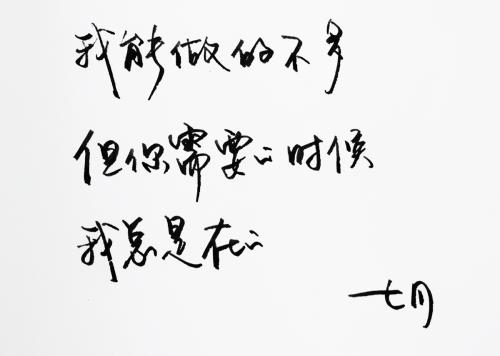 我能做的不多
但你需要的时候
我总是在的
七月